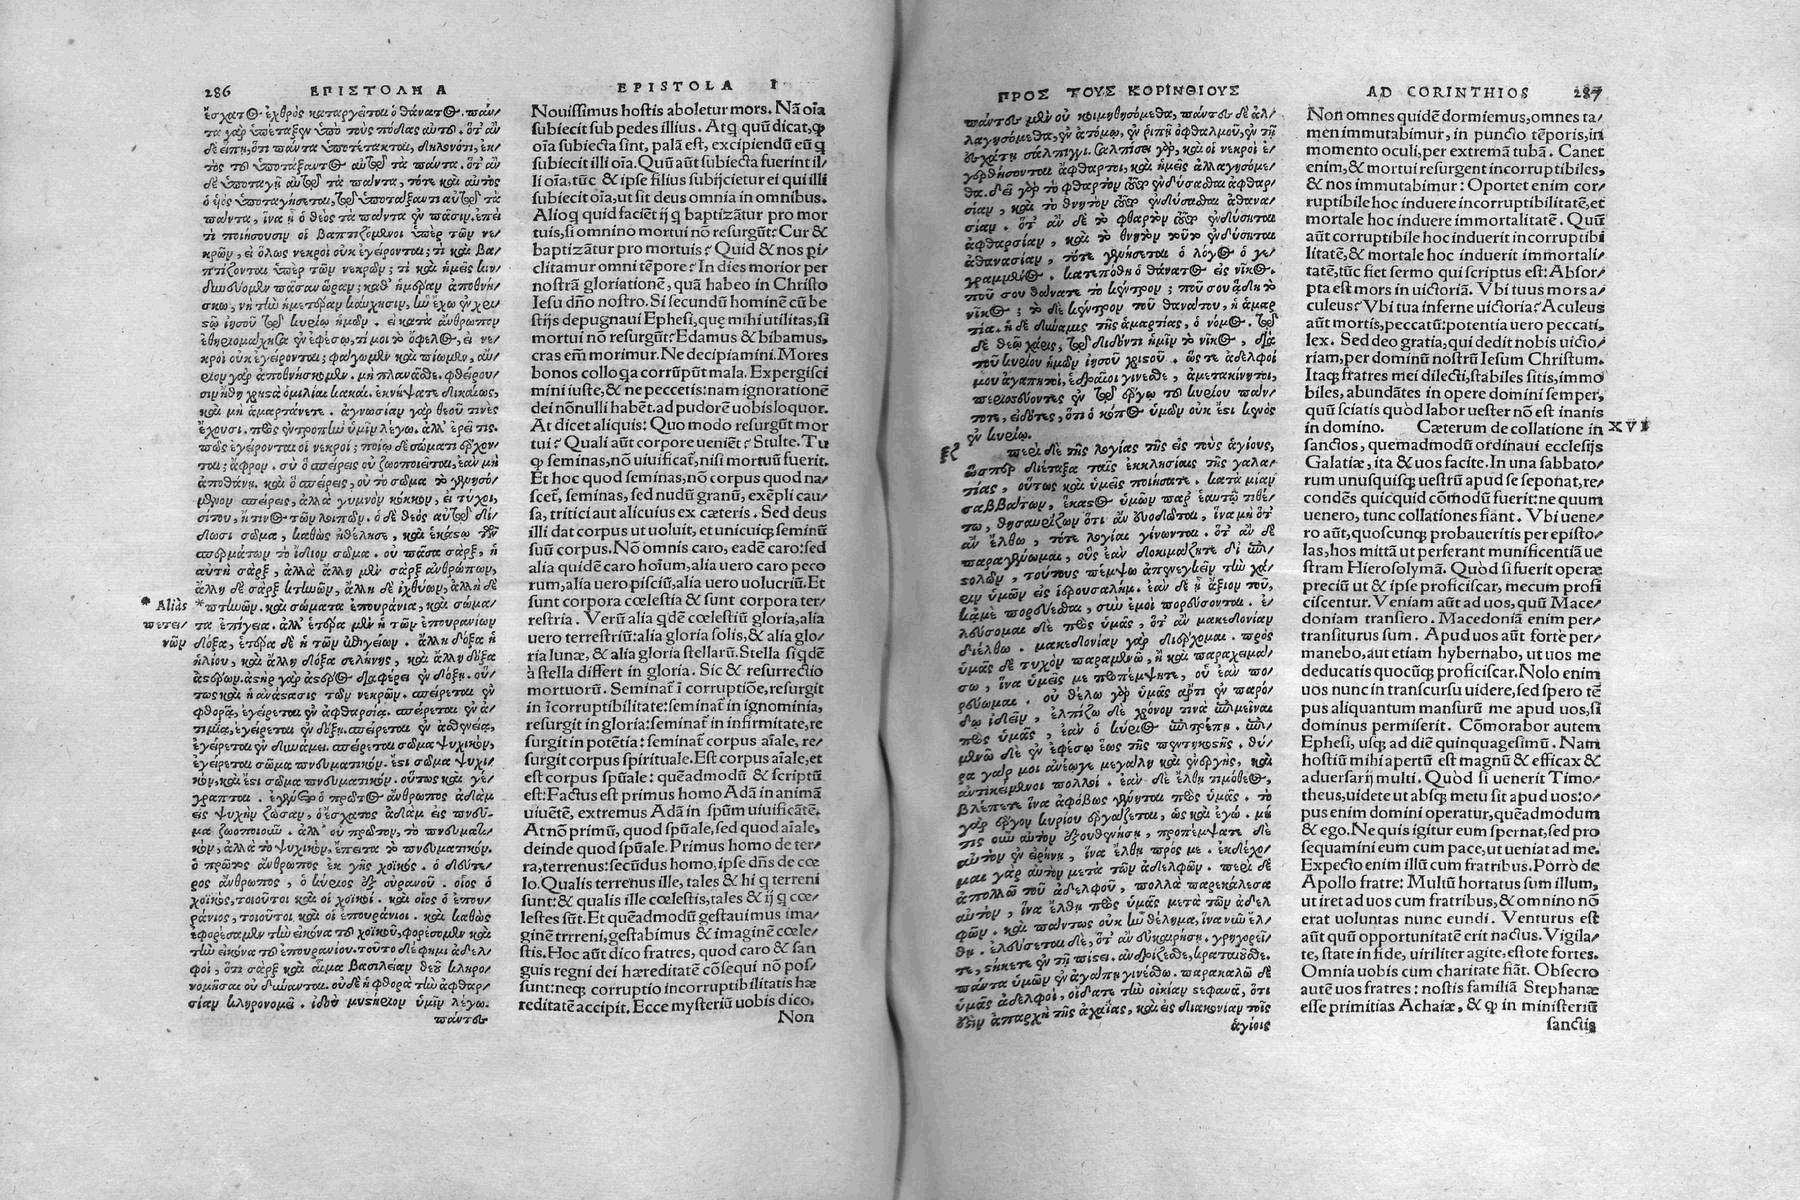 286 ΕΠΙΣΤΟΛΗ Α
ἔσχατος ἐχθρὸς καταργεῖται ὁ θάνατος. πάν/
τα γὰρ ὑπέταξεν ὑπὸ τοὺς πόδας αὐτοῦ. ὅτ' ἂν
δὲ εἴπῃ, ὅτι πάντα ὑποτέτακται, δηλονότι, ἐκ/
τὸς τοῦ ὑποτάξαντος αὐτῷ τὰ πάντα. ὅτ' ἂν
δὲ ὑποταγῇ αὐτῷ τὰ πάντα, τότε καὶ αὐτὸς
ὁ ἡὸς ὑποταγήσεται, τῷ ὑποτάξαντι αὐτῷ τὰ
πάντα, ἵνα ᾖ ὁ θεὸς τὰ πάντα ἐν πᾶσιν. ἐπεὶ
τί ποιήσουσιν οἱ βαπτιζόμενοι ὑπὲρ τῶν νε/
κρῶν, εἰ ὅλως νεκροὶ οὐκ ἐγείρονται; τί καὶ βα/
πτίζονται ὑπὲρ τῶν νεκρῶν; τί καὶ ἡμεῖς κιν/
δυνεύομεν πᾶσαν ὥραν; καθ' ἡμέραν ἀποθνή/
σκω, νὴ τὴν ἡμετέραν καύχησιν, ἣν ἔχω ἐν χρι/
στῷ ἰησοῦ τῷ κυρίῳ ἡμῶν. εἰ κατὰ ἄνθρωπον
ἐθηριομάχησα ἐν ἐφέσῳ, τί μοι τὸ ὄφελος, εἰ νε/
κροὶ οὐκ ἐγείρονται; φάγωμεν καὶ πίωμεν, αὔ/
ριον γὰρ ἀποθνήσκομεν. μὴ πλανᾶσθε. φθείρου/
σιν ἤθη χρηστὰ ὁμιλίαι κακαί. ἐκνήψατε δικαίως,
καὶ μὴ ἁμαρτάνετε. ἀγνωσίαν γὰρ θεοῦ τινὲς
ἔχουσι. πρὸς ἐντροπὴν ὑμῖν λέγω. ἀλλ' ἐρεῖ τις.
πῶς ἐγείρονται οἱ νεκροί; ποίῳ δὲ σώματι ἔρχον/
ται; ἄφρον. σὺ ὃ σπείρεις οὐ ζωοποιεῖται, ἐὰν μὴ
ἀποθάνῃ. καὶ ὃ σπείρεις, οὐ τὸ σῶμα τὸ γενησό/
μενον σπείρεις, ἀλλὰ γυμνὸν κόκκον, εἰ τύχοι,
σίτου, ἤ τινος τῶν λοιπῶν. ὁ δὲ θεὸς αὐτῷ δί/
δωσι σῶμα, καθὼς ἠθέλησε, καὶ ἑκάστῳ τῶν
σπερμάτων τὸ ἴδιον σῶμα. οὐ πᾶσα σὰρξ, ἡ
αὐτὴ σὰρξ, ἀλλὰ ἄλλη μὲν σὰρξ ἀνθρώπων,
ἄλλη δὲ σὰρξ κτηνῶν, ἄλλη δὲ ἰχθύων, ἄλλη δὲ
* Aliâs
πετει/
νῶν
*πτηνῶν. καὶ σώματα ἐπουράνια, καὶ σώμα/
τα ἐπίγεια. ἀλλ' ἑτέρα μὲν ἡ τῶν ἐπουρανίων
δόξα, ἑτέρα δὲ ἡ τῶν ἐπιγείων. ἄλλη δόξα ἡ
λίου, καὶ ἄλλη δόξα σελήνης, καὶ ἄλλη δόξα
ἀστέρων. ἀστὴρ γὰρ ἀστέρος διαφέρει ἐν δόξῃ. οὕ/
τως καὶ ἡ ἀνάστασις τῶν νεκρῶν. σπείρεται ἐν
φθορᾷ, ἐγείρεται ἐν ἀφθαρσίᾳ. σπείρεται ἐν ἀ/
τιμίᾳ, ἐγείρεται ἐν δόξῃ. σπείρεται ἐν ἀσθενείᾳ,
ἐγείρεται ἐν δυνάμει. σπείρεται σῶμα ψυχικόν,
ἐγείρεται σῶμα πνευματικόν. ἔστι σῶμα ψυχι/
κόν, καὶ ἔστι σῶμα πνευματικόν. οὕτως καὶ γέ/
γραπται. ἐγένετο ὁ πρῶτος ἄνθρωπος ἀδὰμ
εἰς ψυχὴν ζῶσαν, ὁ ἔσχατος ἀδὰμ εἰς πνεῦ/
μα ζωοποιοῦν. ἀλλ' οὐ πρῶτον, τὸ πνευματι/
κόν, ἀλλὰ τὸ ψυχικόν, ἔπειτα τὸ πνευματικόν.
ὁ πρῶτος ἄνθρωπος ἐκ γῆς χοϊκός. ὁ δεύτε/
ρος ἄνθρωπος, ὁ κύριος ἐξ οὐρανοῦ. οἷος ὁ
χοϊκός, τοιοῦτοι καὶ οἱ χοϊκοί. καὶ οἷος ὁ ἐπου/
ράνιος, τοιοῦτοι καὶ οἱ ἐπουράνιοι. καὶ καθὼς
ἐφορέσαμεν τὴν εἰκόνα τοῦ χοϊκοῦ, φορέσομεν καὶ
τὴν εἰκόνα τοῦ ἐπουρανίου. τοῦτο δέ φημι ἀδελ/
φοί, ὅτι σὰρξ καὶ αἷμα βασιλείαν θεοῦ κληρο/
νομῆσαι οὐ δύνανται. οὐδὲ ἡ φθορὰ τὴν ἀφθαρ/
σίαν κληρονομεῖ. ἰδοὺ μυστήριον ὑμῖν λέγω.
πάντες
EPISTOLA I
Nouissimus hostis aboletur mors. Nã oĩa
subiecit sub pedes illius. Atq̃ quũ dicat, ꝙ
oĩa subiecta sint, palã est, excipiendũ eũ q̃
subiecit illi oĩa. Quũ aũt subiecta fuerint il/
li oĩa, tũc & ipse filius subijcietur ei qui illi
subiecit oĩa, ut sit deus omnia in omnibus.
Alioq̃ quid faciẽt ij q̃ baptizãtur pro mor
tuis, si omnino mortui nõ resurgũt? Cur &
baptizãtur pro mortuis? Quid & nos pi/
clitamur omni tẽpore? In dies morior per
nostrã gloriationẽ, quã habeo in Christo
Iesu dño nostro. Si secundũ hominẽ cũ be
stijs depugnaui Ephesi, quę mihi utilitas, si
mortui nõ resurgũt? Edamus & bibamus,
cras em̃ morimur. Ne decipiamini. Mores
bonos colloq̃a corrũpũt mala. Expergisci
mini iuste, & ne peccetis: nam ignorationẽ
dei nõnulli habẽt. ad pudorẽ uobis loquor.
At dicet aliquis: Quo modo resurgũt mor
tui? Quali aũt corpore ueniẽt? Stulte. Tu
ꝙ seminas, nõ uiuificat̃, nisi mortuũ fuerit.
Et hoc quod seminas, nõ corpus quod na/
scet̃, seminas, sed nudũ granũ, exẽpli cau/
sa, tritici aut alicuius ex cæteris. Sed deus
illi dat corpus ut uoluit, et unicuiq̃ seminũ
suũ corpus. Nõ omnis caro, eadẽ caro: sed
alia quidẽ caro hoĩum, alia uero caro peco
rum, alia uero pisciũ, alia uero uolucriũ. Et
sunt corpora cœlestia & sunt corpora ter/
restria. Verũ alia q̃dẽ cœlestiũ gloria, alia
uero terrestriũ: alia gloria solis, & alia glo/
ria lunæ, & alia gloria stellarũ. Stella siq̃dẽ
à stella differt in gloria. Sic & resurrectio
mortuorũ. Seminat̃ ĩ corruptiõe, resurgit
in ĩcorruptibilitate: seminat̃ in ignominia,
resurgit in gloria: seminat̃ in infirmitate, re
surgit in potẽtia: seminat̃ corpus aĩale, re/
surgit corpus spirituale. Est corpus aĩale, et
est corpus spũale: quẽadmodũ & scriptũ
est: Factus est primus homo Adã in animã
uiuẽtẽ, extremus Adã in spũm uiuificãtẽ.
At nõ primũ, quod spũale, sed quod aĩale,
deinde quod spũale. Primus homo de ter/
ra, terrenus: secũdus homo, ipse dñs de cœ
lo. Qualis terrenus ille, tales & hi q̃ terreni
sunt: & qualis ille cœlestis, tales & ij q̃ cœ/
lestes sũt. Et quẽadmodũ gestauimus ima/
ginẽ trrreni, gestabimus & imaginẽ cœle/
stis. Hoc aũt dico fratres, quod caro & san
guis regni dei hæreditatẽ cõsequi nõ pos/
sunt: neq̃ corruptio incorruptibilitatis hæ
reditatẽ accipit. Ecce mysteriũ uobis dico.
Non
ΠΡΟΣ ΤΟΥΣ ΚΟΡΙΝΘΙΟΥΣ
πάντες μὲν οὐ κοιμηθησόμεθα, πάντες δὲ ἀλ/
λαγησόμεθα, ἐν ἀτόμῳ, ἐν ῥιπῇ ὀφθαλμοῦ, ἐν τῇ
ἐσχάτῃ σάλπιγγι. σαλπίσει γὰρ, καὶ οἱ νεκροὶ ἐ/
γερθήσονται ἄφθαρτοι, καὶ ἡμεῖς ἀλλαγησόμε/
θα. δεῖ γὰρ τὸ φθαρτὸν τοῦτο ἐνδύσασθαι ἀφθαρ/
σίαν, καὶ τὸ θνητὸν τοῦτο ἐνδύσασθαι ἀθανα/
σίαν. ὅτ' ἂν δὲ τὸ φθαρτὸν τοῦτο ἐνδύσηται
ἀφθαρσίαν, καὶ τὸ θνητὸν τοῦτο ἐνδύσηται
ἀθανασίαν, τότε γενήσεται ὁ λόγος ὁ γε/
γραμμένος. κατεπόθη ὁ θάνατος εἰς νῖκος.
ποῦ σου θάνατε τὸ κέντρον; ποῦ σου ᾅδη τὸ
νῖκος; τὸ δὲ κέντρον τοῦ θανάτου, ἡ ἁμαρ
τία. ἡ δὲ δύναμις τῆς ἁμαρτίας, ὁ νόμος. τῷ
δὲ θεῷ χάρις, τῷ διδόντι ἡμῖν τὸ νῖκος, διὰ
τοῦ κυρίου ἡμῶν ἰησοῦ χριστοῦ. ὥστε ἀδελφοί
μου ἀγαπητοί, ἑδραῖοι γίνεσθε, ἀμετακίνητοι,
περισσεύοντες ἐν τῷ ἔργῳ τοῦ κυρίου πάν/
τοτε, εἰδότες, ὅτι ὁ κόπος ὑμῶν οὐκ ἔστι κενὸς
ἐν κυρίῳ.
περὶ δὲ τῆς λογίας τῆς εἰς τοὺς ἁγίους,
ὥσπερ διέταξα ταῖς ἐκκλησίαις τῆς γαλα/
τίας, οὕτως καὶ ὑμεῖς ποιήσατε. κατὰ μίαν
σαββάτων, ἕκαστος ὑμῶν παρ' ἑαυτῷ τιθέ/
τω, θησαυρίζων ὅτι ἂν εὐοδῶται, ἵνα μὴ ὅτ'
ἂν ἔλθω, τότε λογίαι γίνωνται. ὅτ' ἂν δὲ
παραγένωμαι, οὓς ἐὰν δοκιμάζητε δι' ἐπι/
στολῶν, τούτους πέμψω ἀπενεγκεῖν τὴν χά/
ριν ὑμῶν εἰς ἱερουσαλήμ. ἐὰν δὲ ᾖ ἄξιον τοῦ,
κἀμὲ πορεύεσθαι, σὺν ἐμοὶ πορεύσονται. ἐ/
λεύσομαι δὲ πρὸς ὑμᾶς, ὅτ' ἂν μακεδονίαν
διέλθω. μακεδονίαν γὰρ διέρχομαι. πρὸς
ὑμᾶς δὲ τυχὸν παραμενῶ, ἢ καὶ παραχειμά/
σω, ἵνα ὑμεῖς με προπέμψητε, οὗ ἐὰν πο/
ρεύωμαι. οὐ θέλω γὰρ ὑμᾶς ἄρτι ἐν παρό/
δῳ ἰδεῖν, ἐλπίζω δὲ χρόνον τινὰ ἐπιμεῖναι
πρὸς ὑμᾶς, ἐὰν ὁ κύριος ἐπιτρέπῃ. ἐπι/
μενῶ δὲ ἐν ἐφέσῳ ἕως τῆς πεντηκοστῆς. θύ/
ρα γάρ μοι ἀνέωγε μεγάλη καὶ ἐνεργής, καὶ
ἀντικείμενοι πολλοί. ἐὰν δὲ ἔλθῃ τιμόθεος,
βλέπετε ἵνα ἀφόβως γένηται πρὸς ὑμᾶς. τὸ
γὰρ ἔργον κυρίου ἐργάζεται, ὡς καὶ ἐγώ. μή
τις οὖν αὐτὸν ἐξουθενήσῃ, προπέμψατε δὲ
αὐτὸν ἐν εἰρήνῃ, ἵνα ἔλθῃ πρός με. ἐκδέχο/
μαι γὰρ αὐτὸν μετὰ τῶν ἀδελφῶν. περὶ δὲ
ἀπολλὼ τοῦ ἀδελφοῦ, πολλὰ παρεκάλεσα
αὐτόν, ἵνα ἔλθῃ πρὸς ὑμᾶς μετὰ τῶν ἀδελ
φῶν. καὶ πάντως οὐκ ἦν θέλημα, ἵνα νῦν ἔλ/
θῃ. ἐλεύσεται δὲ, ὅτ' ἂν εὐκαιρήσῃ. γρηγορεῖ/
τε, στήκετε ἐν τῇ πίστει. ἀνδρίζεσθε, κραταιοῦσθε.
πάντα ὑμῶν ἐν ἀγάπῃ γινέσθω. παρακαλῶ δὲ
ὑμᾶς ἀδελφοί, οἴδατε τὴν οἰκίαν στεφανᾶ, ὅτι
ἐστὶν ἀπαρχὴ τῆς ἀχαΐας, καὶ εἰς διακονίαν τοῖς
ἁγίοις
AD CORINTHIOS 287
Non omnes quidẽ dormiemus, omnes ta/
men immutabimur, in puncto tẽporis, in
momento oculi, per extremã tubã. Canet
enim, & mortui resurgent incorruptibiles,
& nos immutabimur: Oportet enim cor/
ruptibile hoc induere incorruptibilitatẽ, et
mortale hoc induere immortalitatẽ. Quũ
aũt corruptibile hoc induerit incorruptibi
litatẽ, & mortale hoc induerit immortali/
tatẽ, tũc fiet sermo qui scriptus est: Absor/
pta est mors in uictoriã. Vbi tuus mors a/
culeus? Vbi tua inferne uictoria? Aculeus
aũt mortis, peccatũ: potentia uero peccati,
lex. Sed deo gratia, qui dedit nobis uicto/
riam, per dominũ nostrũ Iesum Christum.
Itaq̃ fratres mei dilecti, stabiles sitis, immo
biles, abundãtes in opere domini semper,
quũ sciatis quòd labor uester nõ est inanis
in domino. Cæterum de collatione in XVI
sanctos, quemadmodũ ordinaui ecclesijs
Galatiæ, ita & uos facite. In una sabbato/
rum unusquisq̃ uestrũ apud se seponat, re/
condẽs quicquid cõmodũ fuerit: ne quum
uenero, tunc collationes fiãnt. Vbi uene/
ro aũt, quoscunq̃ probaueritis per episto/
las, hos mittã ut perferant munificentiã ue
stram Hierosolymã. Quòd si fuerit operæ
preciũ ut & ipse proficiscar, mecum profi
ciscentur. Veniam aũt ad uos, quũ Mace/
doniam transiero. Macedoniã enim per/
transiturus sum. Apud uos aũt fortè per/
manebo, aut etiam hybernabo, ut uos me
deducatis quocũq̃ proficiscar. Nolo enim
uos nunc in transcursu uidere, sed spero tẽ
pus aliquantum mansurũ me apud uos, si
dominus permiserit. Cõmorabor autem
Ephesi, usq̃ ad diẽ quinquagesimũ. Nam
hostiũ mihi apertũ est magnũ & efficax &
aduersarij multi. Quòd si uenerit Timo/
theus, uidete ut absq̃ metu sit apud uos: o/
pus enim domini operatur, quẽadmodum
& ego. Ne quis igitur eum spernat, sed pro
sequamini eum cum pace, ut ueniat ad me.
Expecto enim illũ cum fratribus. Porrò de
Apollo fratre: Multũ hortatus sum illum,
ut iret ad uos cum fratribus, & omnino nõ
erat uoluntas nunc eundi. Venturus est
aũt quũ opportunitatẽ erit nactus. Vigila/
te, state in fide, uiriliter agite, estote fortes.
Omnia uobis cum charitate fiãt. Obsecro
autẽ uos fratres: nostis familiã Stephanæ
esse primitias Achaiæ, & ꝙ in ministeriũ
sanctis